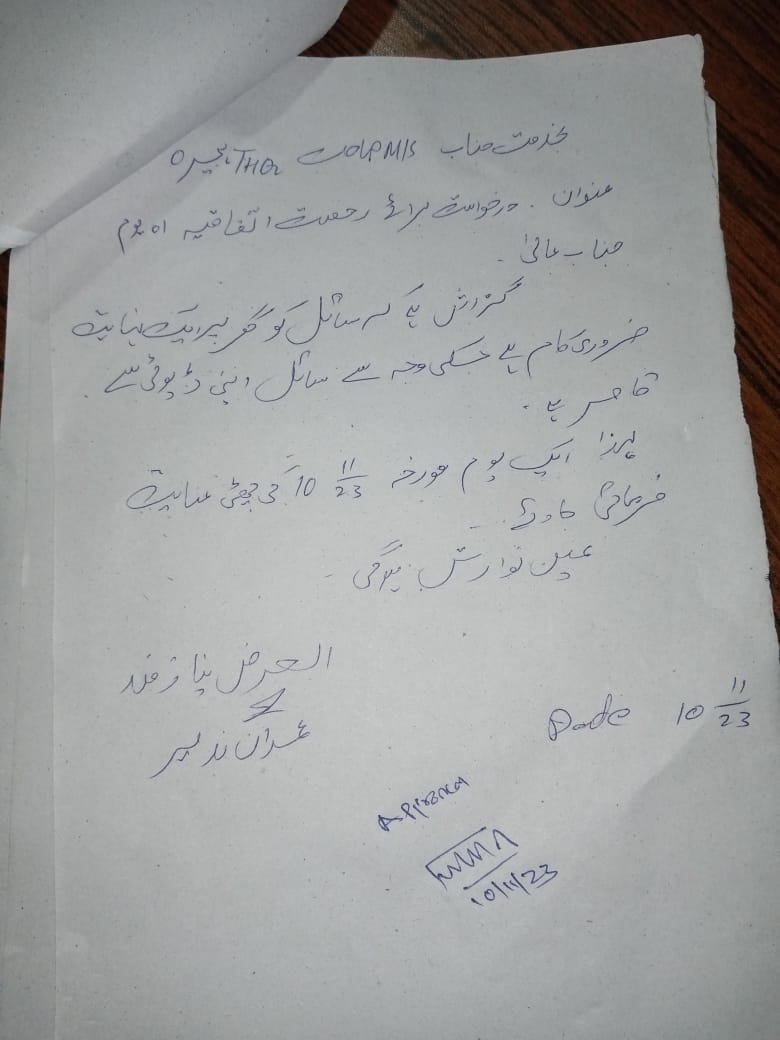 بخدمت جناب MS صاحب THQ ہجیرہ
عنوان۔ درخواست برائے رخصت اتفاقیہ 01 یوم
جناب عالیٰ۔
گزارش ہے کہ سائل کو گھر پر ایک نہایت
ضروری کام ہے جسکی وجہ سے سائل اپنی ڈیوٹی سے
قاصر ہے۔
لہذا ایک یوم مورخہ 10 11/23 کی چھٹی عنایت
فرمائی جاوے۔
عین نوازش ہوگی۔
العرض نیازمند
Date 10 11/23
عمران نذیر
Approved
10/11/23